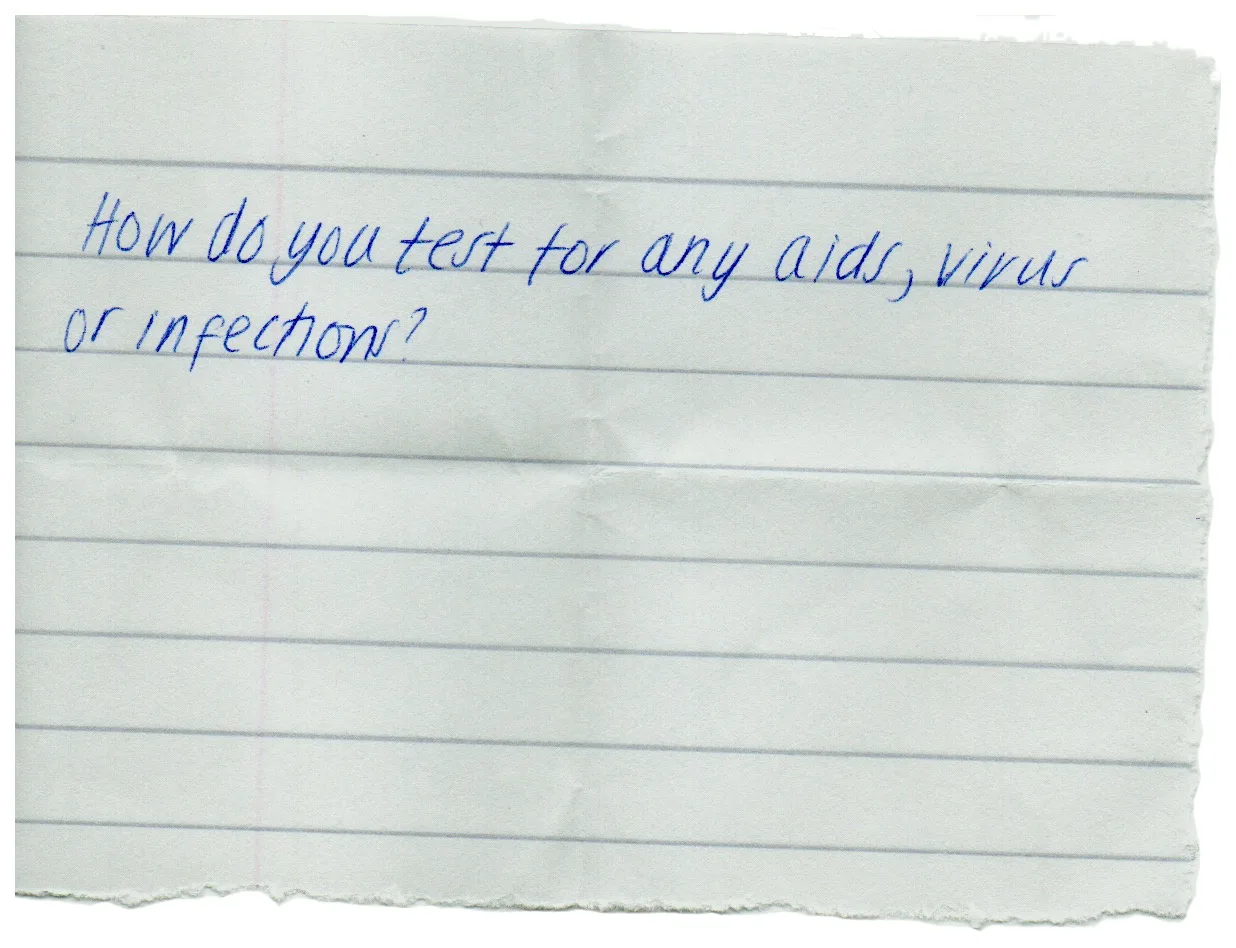 How do you test for any aids, virus
or infections?